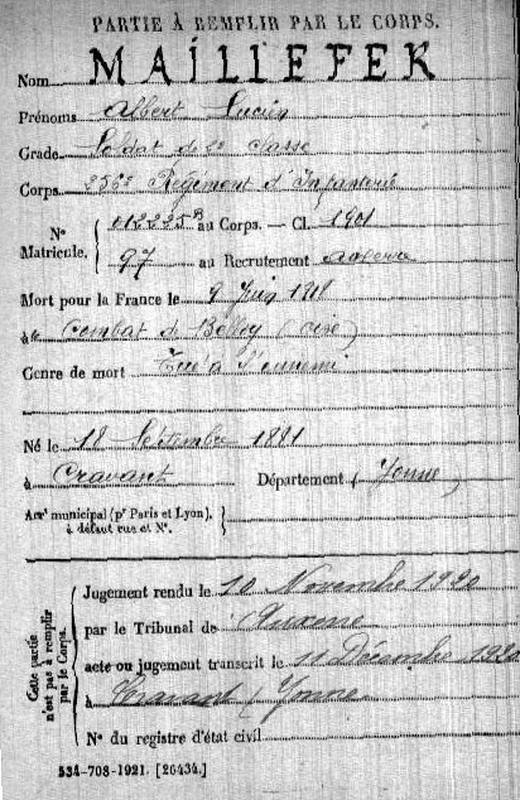 PARTIE À REMPLIR PAR LE CORPS.
Nom MAILLEFEK
Prénoms Albert Lucien
Grade Soldat de 2e Classe
Corps 256e Régiment d'Infanterie
N° Matricule. { 012225 au Corps. — Cl. 1901
97 au Recrutement Auxerre
Mort pour la France le 9 Juin 1918
à Combat de Belloy (Oise)
Genre de mort Tué à l'ennemi
Né le 18 Septembre 1881
à Cravant Département (Yonne)
Arrt municipal (pr Paris et Lyon),
à défaut rue et N°.
Cette partie n'est pas à remplir par le Corps.
Jugement rendu le 10 Novembre 1920
par le Tribunal de Auxerre
acte ou jugement transcrit le 11 Décembre 1920
à Cravant (Yonne
N° du registre d'état civil
534-708-1921. [26434.]